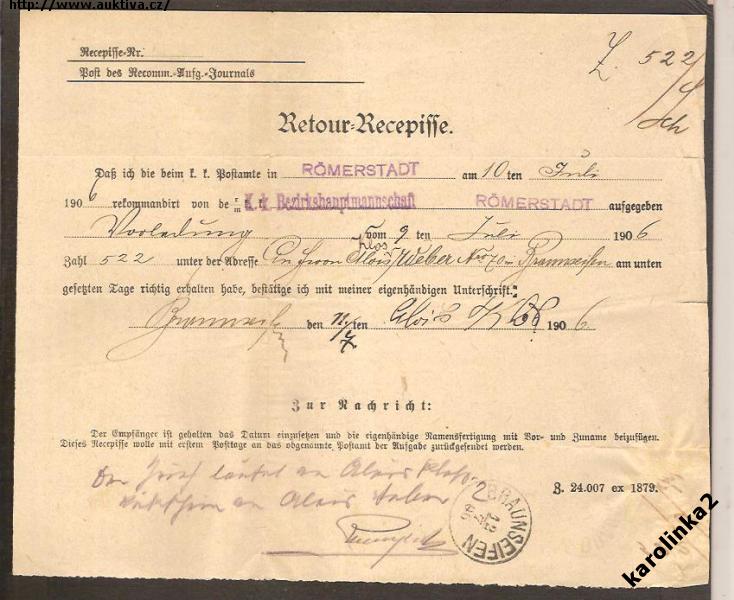 http://www.auktiva.cz/
Recepisse-Nr.
Post des Recomm.-Aufg.-Journals
Z. 522
Retour-Recepisse.
Daß ich die beim k. k. Postamte in RÖMERSTADT am 10 ten Juli
1906 rekommandirt von de K. k. Bezirkshauptmannschaft RÖMERSTADT aufgegeben
Vorladung vom 9 ten Juli 1906
Zahl 522 unter der Adresse Alois Weber Nro 70 in Braunseifen am unten
gesetzten Tage richtig erhalten habe, bestätige ich mit meiner eigenhändigen Unterschrift.
Braunseifen den 11/7 ten Alois 1906
Zur Nachricht:
Der Empfänger ist gehalten das Datum einzusetzen und die eigenhändige Namensfertigung mit Vor- und Zuname beizufügen.
Dieses Recepisse wolle mit erstem Posttage an das obgenannte Postamt der Aufgabe zurückgesendet werden.
Z. 24.007 ex 1879.
Der lautet an Alois
an Alois
BRAUNSEIFEN
karolinka2